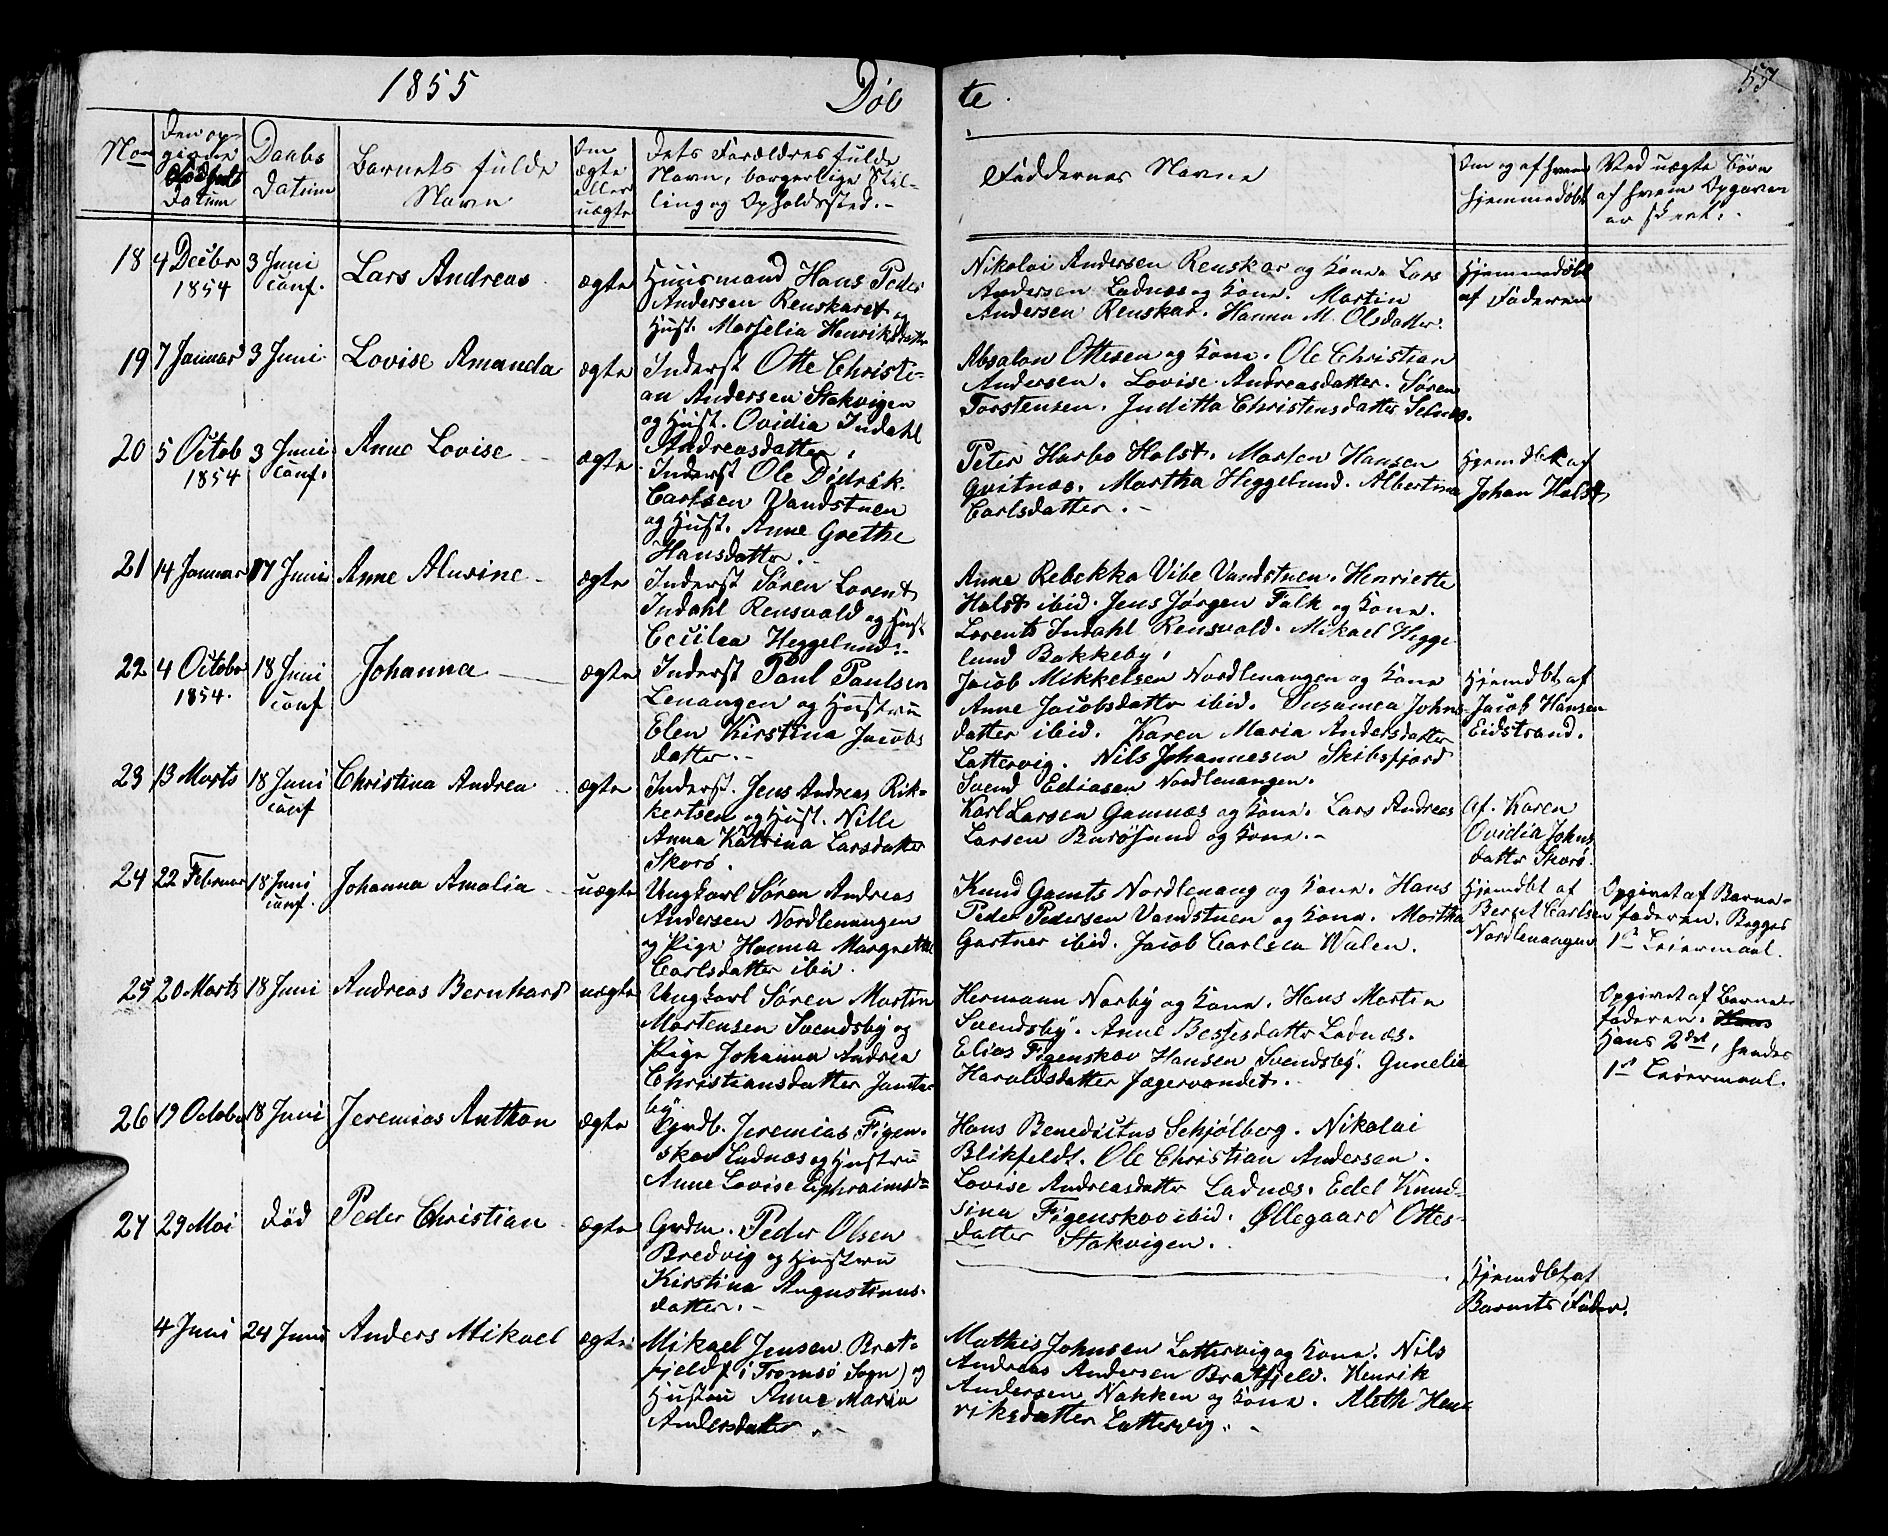 1855 Døb te. 55
Non
Den op-
givne
Fødsels
Datum
Daabs
Datum
Barnets fulde
Navn
Om
ægte
eller
uægte
Dets Forældres fulde
Navn, borgerlige Stil-
ling og Opholdssted.-
Faddernes Navne
Om og af hvem
hjemmedøbt
Ved uægte Børn
af hvem Opgaven
er skeet.-
18 4 Decbr
1854
3 Juni
conf.
Lars Andreas
ægte
Huusmand Hans Peder
Andersen Renskaret og
Hust. Marselia Henriksdatter
Nikolai Andersen Renskar og Kone. Lars
Andersen Ladnæs og Kone. Martin
Andersen Renskar. Hanna M. Olsdatter.
Hjemmedøbt
af Faderen
19 7 Januar 3 Juni
Lovise Amanda
ægte
Inderst Otte Christi-
an Andersen Stakvigen
og Hust. Ovidia Indahl
Andreasdatter.
Absalon Ottesen og Kone. Ole Christian
Andersen. Lovise Andreasdatter. Søren
Torstensen. Juditta Christensdatter Selnæs.
20 5 Octob
1854
3 Juni
conf.
Anne Lovise
ægte
Inderst Ole Didrik
Carlsen Vandstuen
og Hust. Anne Grethe
Hansdatter.
Peter Harbo Holst. Morten Hansen
Qvitnæs. Martha Heggelund. Albertina
Carlsdatter.-
Hjemdbt af
Johan Holst
21 14 Januar 17 Juni
Anne Alurine
ægte
Inderst Søren Lorents
Indahl Rensvold og Hust
Cecilea Heggelund.-
Anne Rebekka Vibe Vandstuen. Henriette
Holst ibid. Jens Jørgen Falk og Kone.
Lorents Indahl Rensvold. Mikael Hegge-
lund Bakkeby.
22 4 Octobr
1854.
18 Juni
conf
Johanna
ægte
Inderst Paul Paulsen
Lenangen og Hustru
Elen Kirstina Jacobs
datter.-
Jacob Mikkelsen Nordlenangen og Kone
Anne Jacobsdatter ibid. Susanna Johns-
datter ibid. Karen Maria Andersdatter
Lattervig. Nils Johannesen Skibsfjord
Svend Ediasen Nordlenangen.
Hjemdbt af
Jacob Hansen
Eidstrand.
23 13 Marts 18 Juni
conf
Christina Andrea
ægte
Inderst. Jens Andreas Rik-
kertsen og Hust. Nille
Anna Katrina Larsdatter
Skorø.
Karl Larsen Gamnæs og Kone. Lars Andreas
Larsen Barøsund og Kone.-
Af Karen
Ovidia Johns
datter Skorø.
24 22 Februar 18 Juni
conf.
Johanna Amalia
uægte
Ungkarl Søren Andreas
Andersen Nordlenangen
og Pige Hanna Margrethe
Carlsdatter ibid.
Knud Gamts Nordlenang og Kone. Hans
Peder Pedersen Vandstuen og Kone. Martha
Gartner ibid. Jacob Carlsen Walen.
Hjemdbt af
Bernt Carlsen
Nordlenangen
Opgivet af Barne-
faderen. Begges
1st Leiermaal.
25 20 Marts 18 Juni
Andreas Bernhard
uægte
Ungkarl Søren Martin
Mortensen Svendsby og
Pige Johanna Andrea
Christiansdatter Jænta-
by.
Hermann Norby og Kone. Hans Martin
Svendsby. Anne Bessesdatter Ladnæs.
Elias Figenskov Hansen Svendsby. Gunelia
Haraldsdatter Jægervandet.-
Opgivet af Barne-
faderen. Hans
Hans 2det, hendes
1st Leiermaal.
26 19 Octobr 18 Juni
Jeremias Anthon
ægte
Gmdb. Jeremias Figen-
skov Ladnæs og Hustru
Anne Lovise Ephraimsd-
Hans Benedictus Schjølberg. Nikolai
Blikfeldt. Ole Christian Andersen.
Lovise Andreasdatter Ladnæs. Edel Knud-
sina Figenskov ibid. Øllegaard Ottes-
datter Stakvigen.
27 29 Mai død
Peder Christian
ægte
Grdm. Peder Olsen
Bredvig og Hustru
Kirstina Augustinus-
datter.-
Hjemdbt af
Barnets Fader.
4 Juni 24 Juni
Anders Mikael
ægte
Mikael Jensen Brat-
fjeld (i Tromsø Sogn) og
Hustru Anne Maria
Andersdatter.-
Mathis Johnsen Lattervig og Kone. Nils
Andreas Andersen Bratfjeld. Henrik
Andersen Nakken og Kone. Aleth Hen-
riksdatter Lattervig.-